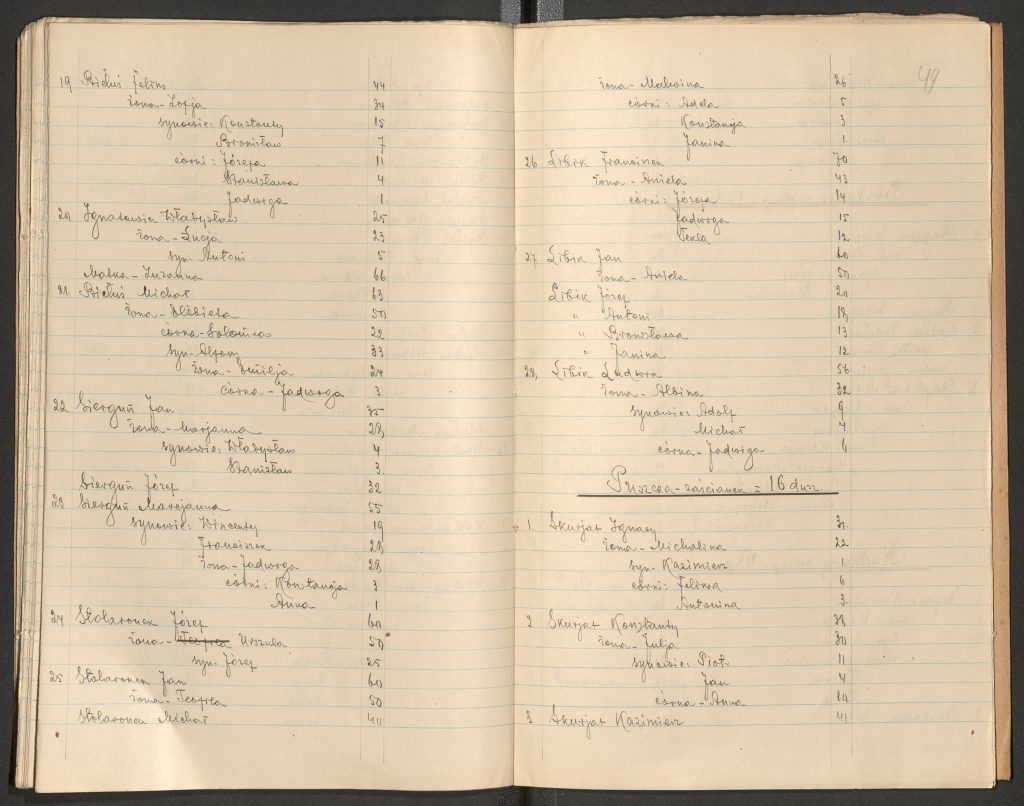 19 Bićuś Feliks 44
żona - Zofja 34
synowie: Konstanty 15
Bronisław 7
córki: Józefa 11
Stanisława 4
Jadwiga 1
20 Ignatowicz Władysław 25
żona - Łucja 23
syn - Antoni 5
Matka - Zuzanna 66
21 Michał 63
żona - Elżbieta 50
córka - Salomea 22
syn - Alfons 33
żona - Emilja 24
córka - Jadwiga 3
22 Sierguń Jan 35
żona - Marjanna 28
synowie: Władysław 4
Stanisław 3
Sierguń Józef 32
23 Sierguń Marcjanna 55
synowie: Wincenty 19
Franciszek 28
żona - Jadwiga 28
córki: Konstancja 3
Anna 1
24 Stolaronek Józef 60
żona - Teofila Urszula 50
syn - Józef 25
25 Stolaronek Jan 60
żona - Teofila 50
Stolaronek Michał 40
49
żona - Malwina 26
córki: Adela 5
Konstancja 3
Janina 1
26 Libik Franciszek 70
żona - Aniela 43
córki: Józefa 14
Jadwiga 15
Tekla 12
27 Libik Jan 60
żona - Aniela 50
Libik Józef 20
" Antoni 18
" Bronisława 13
" Janina 12
28 Libik Ludwik 56
żona - Albina 32
synowie: Adolf 9
Michał 4
córka - Jadwiga 6
Puszcza - zaścianek = 16 dusz
1 Skurjat Ignacy 31
żona - Michalina 22
syn - Kazimierz 1
córki: Feliksa 6
Antonina 3
2 Skurjat Konstanty 38
żona - Julja 30
synowie: Piotr 11
Jan 4
córka - Anna 10
3 Skurjat Kazimierz 41